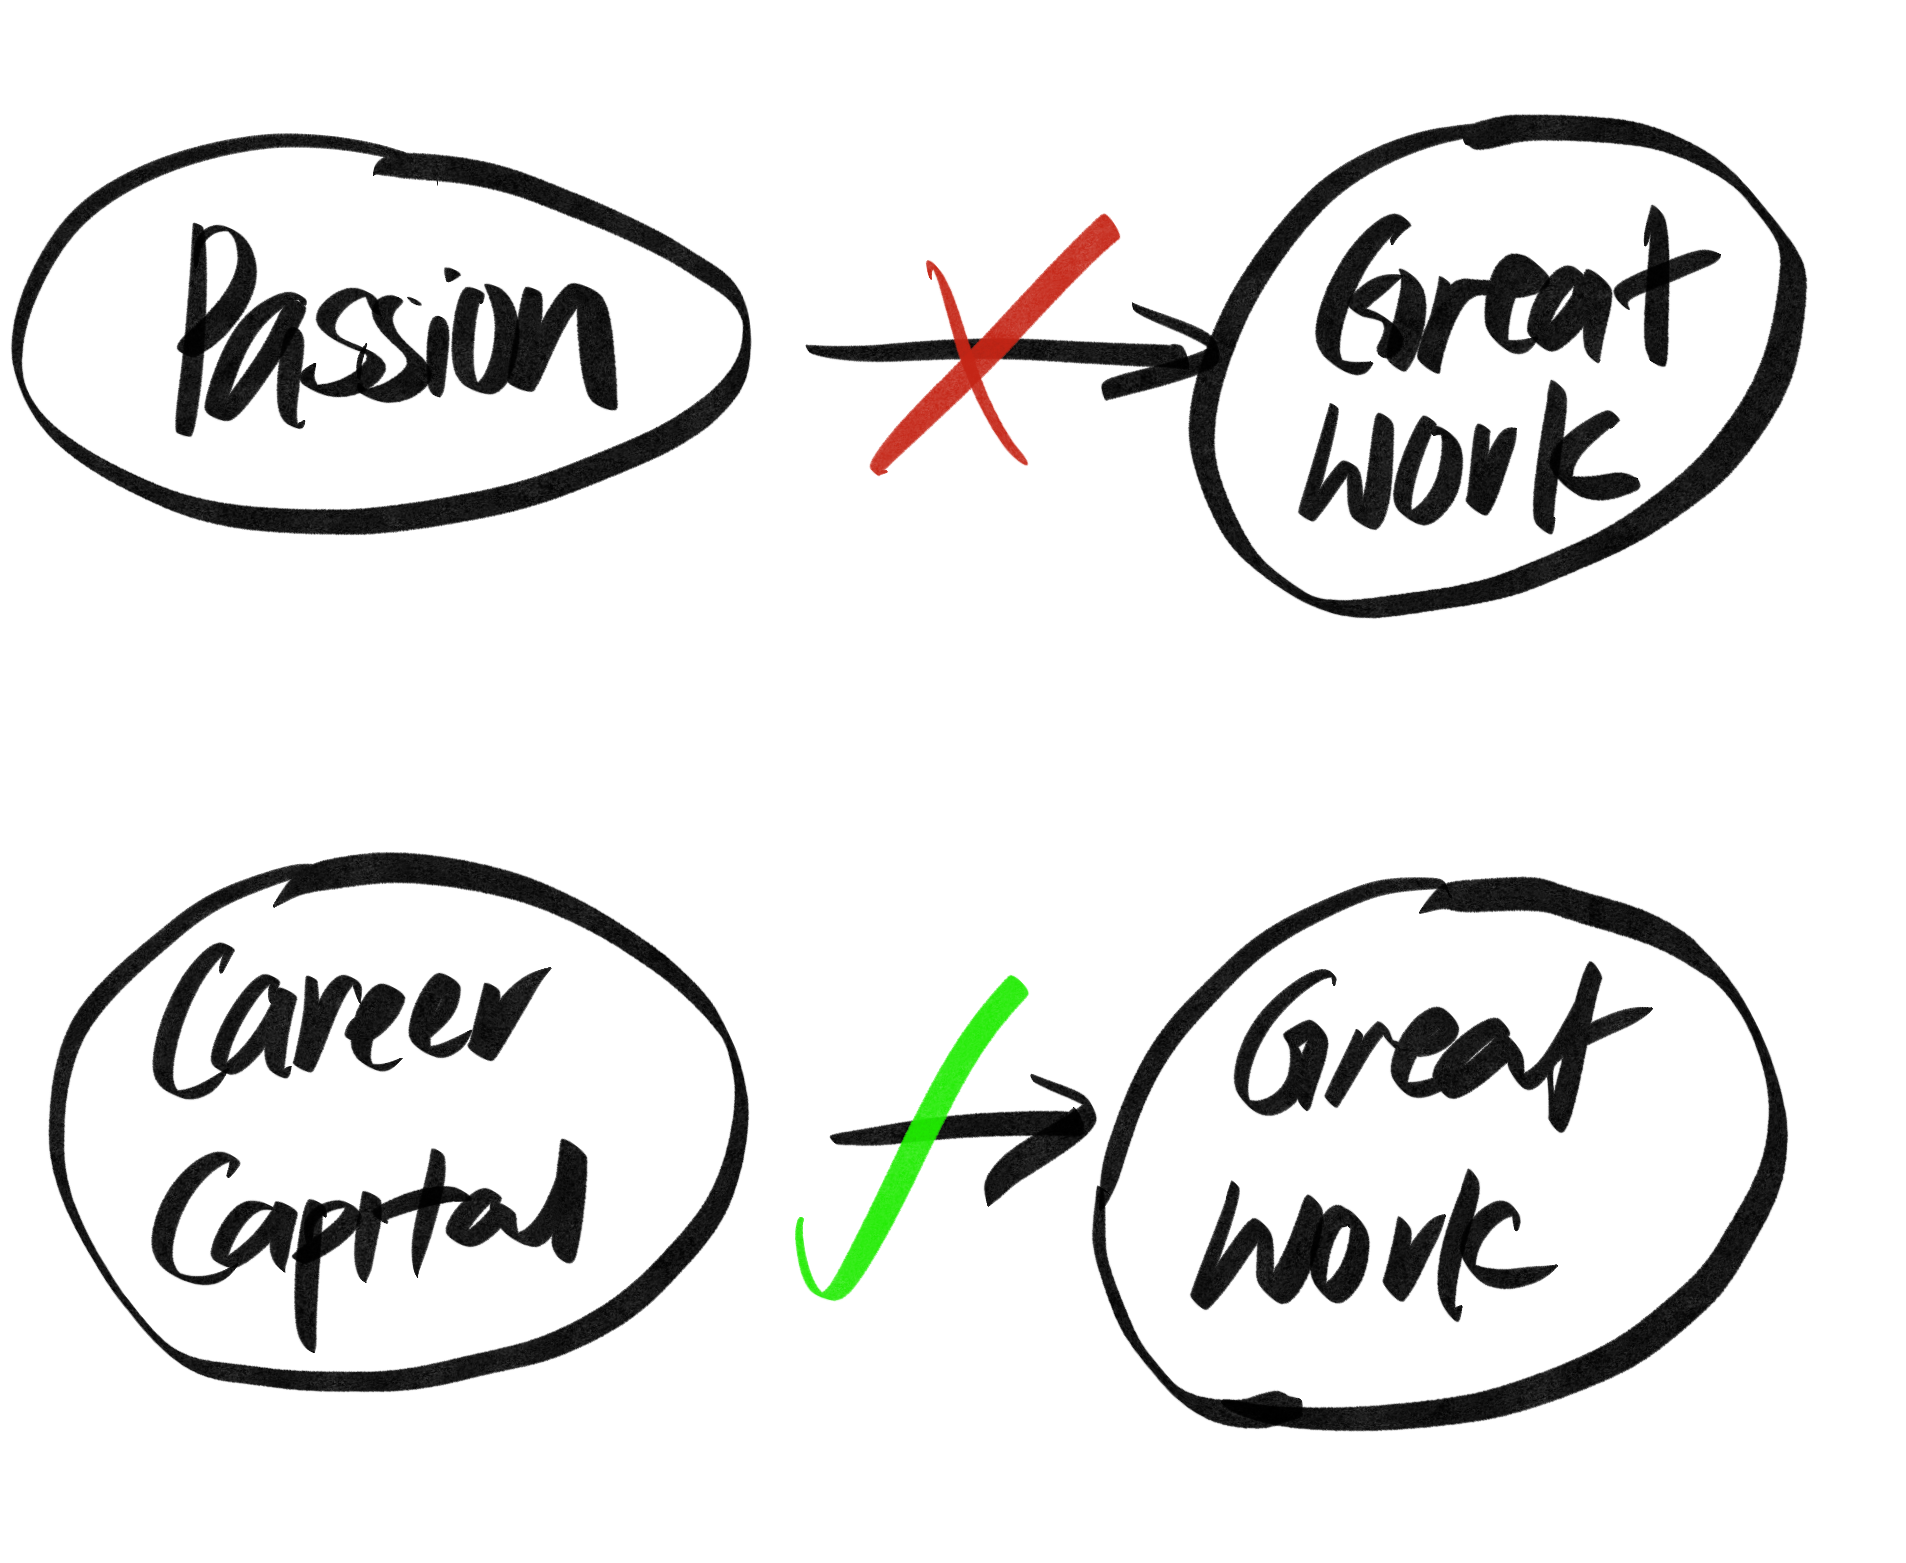 Passion
Great
work
Career
Capital
Great
work